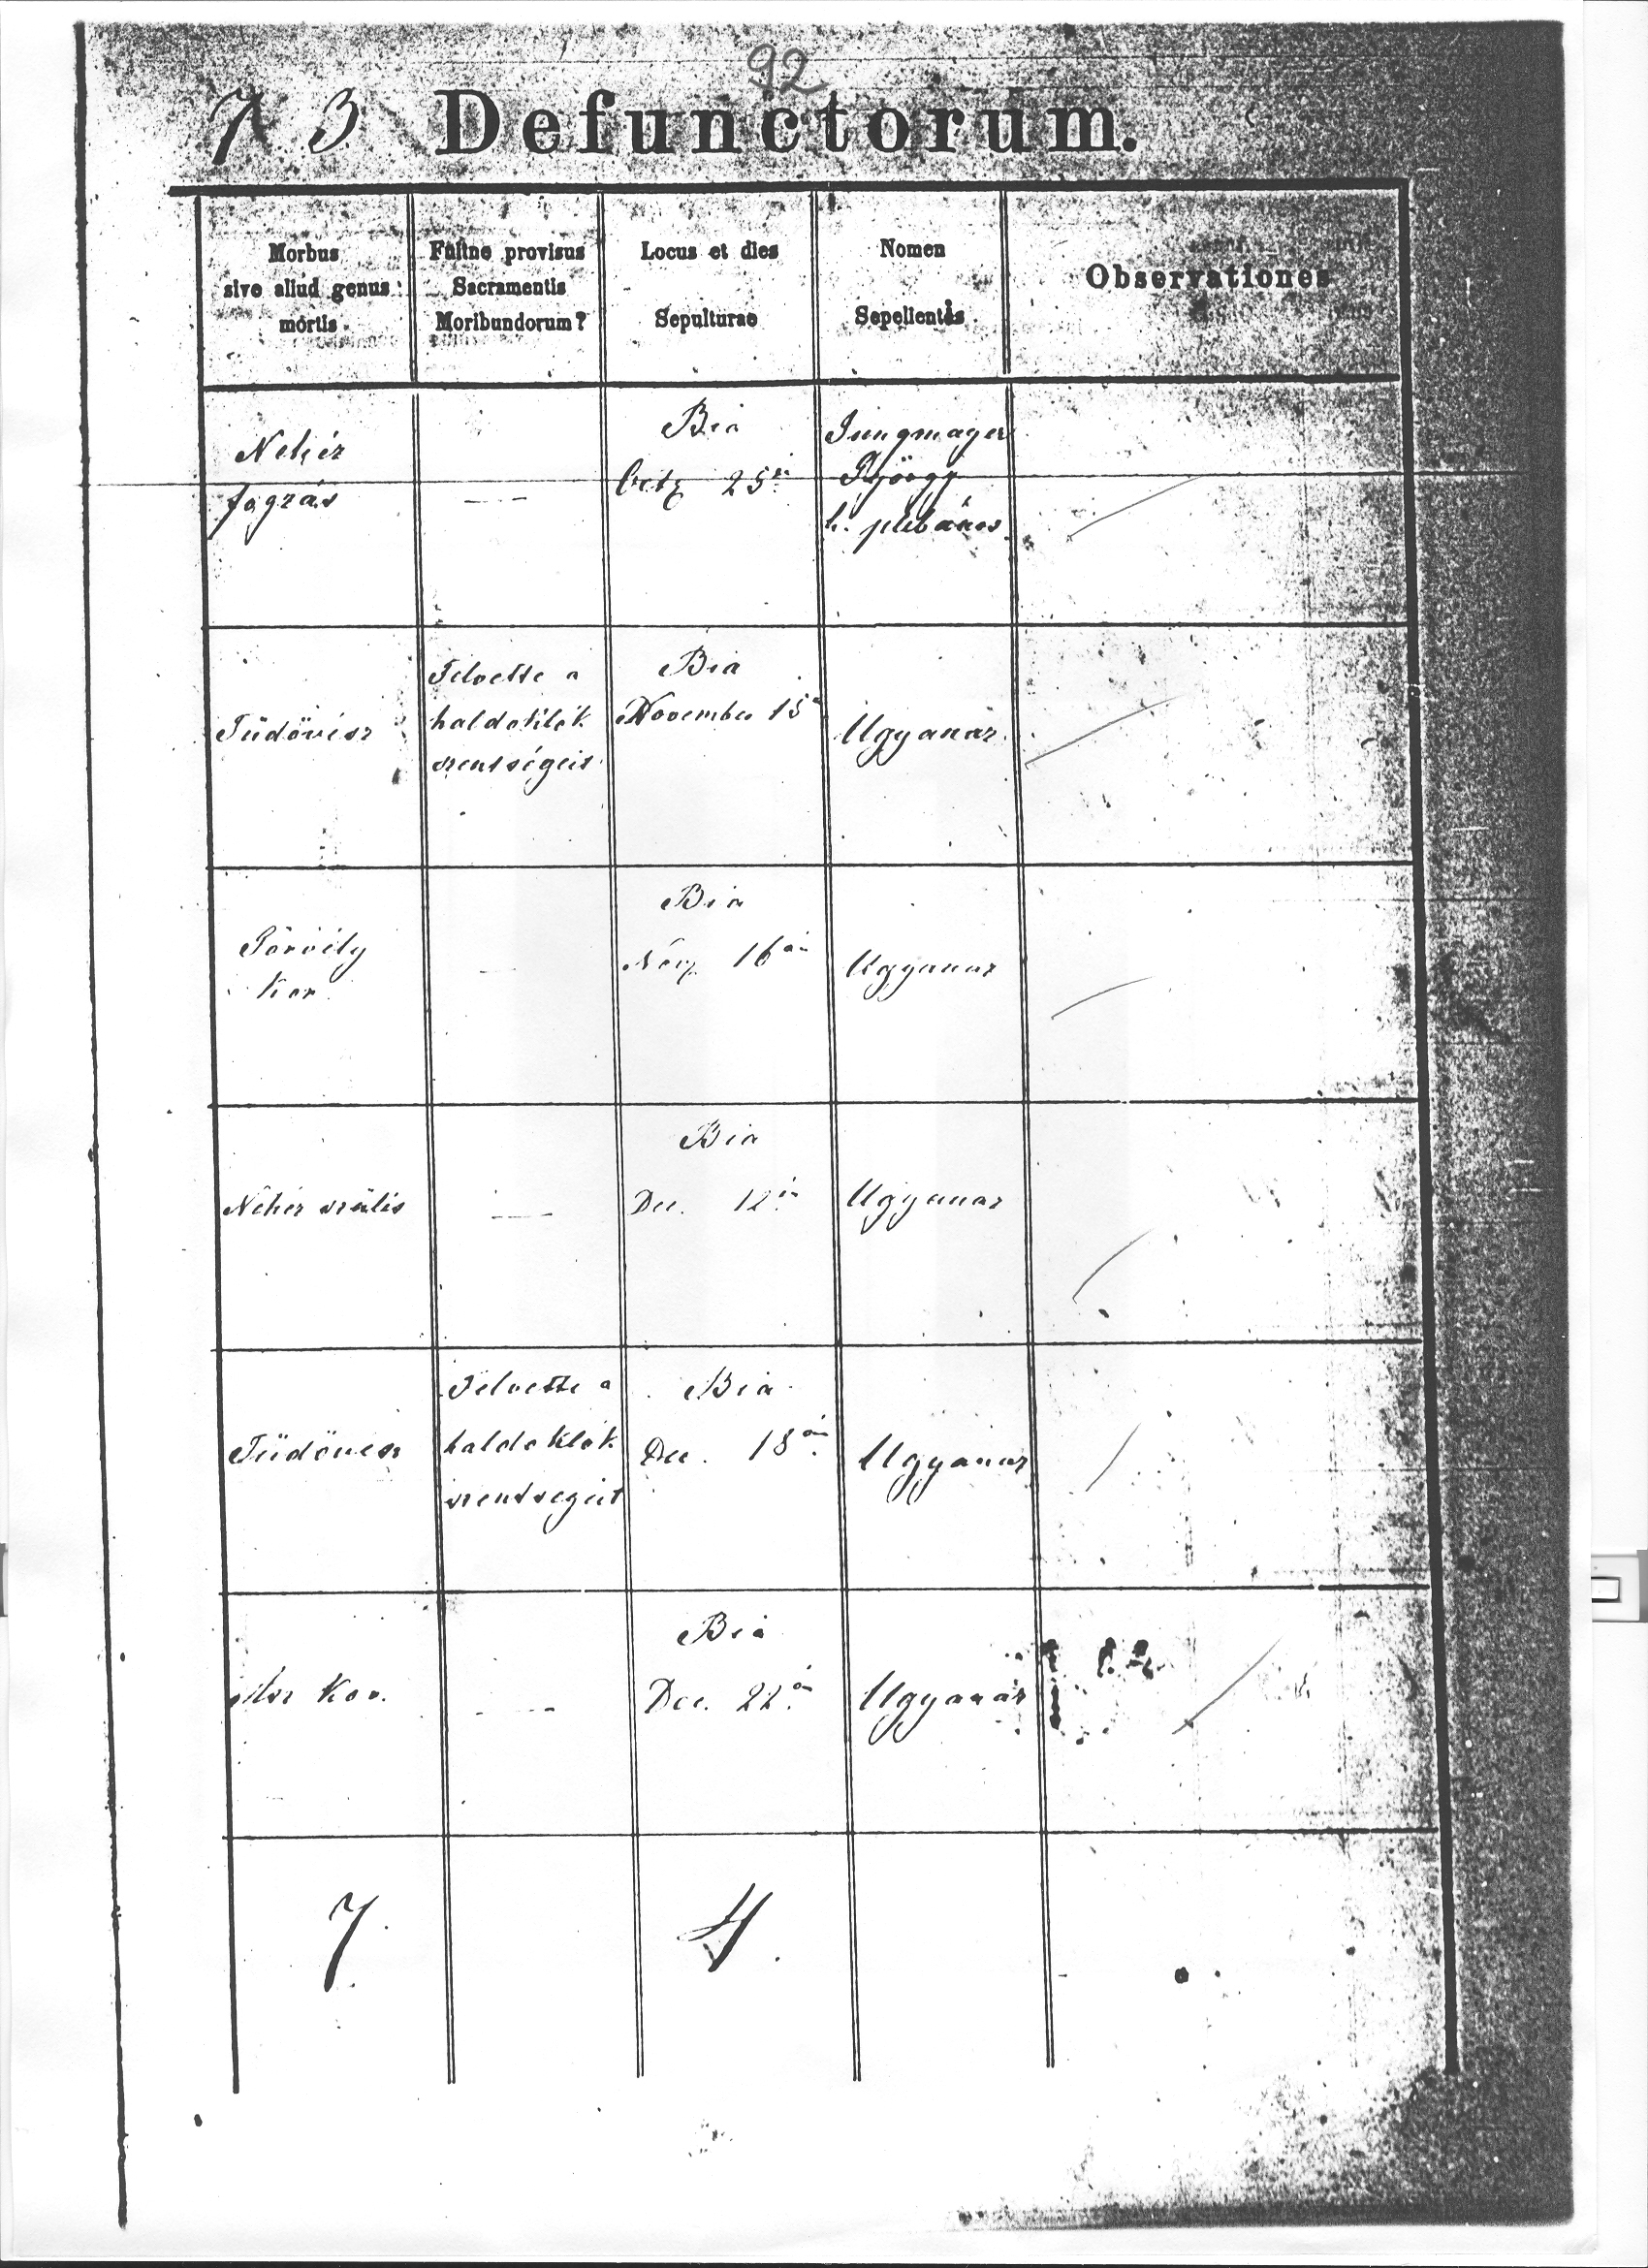 92
73 Defunctorum.
Morbus
sive aliud genus
mortis
Fuitne provisus
Sacramentis
Moribundorum?
Locus et dies
Sepulturae
Nomen
Sepelientis
Observationes
Nehéz
fogzás
— —
Bia
25én
Jungmayer
György
h. plebános
Tüdővész
Felvette a
haldoklók
szentségeit
Bia
November 15én
Ugyanaz
Görvély
kór
—
Bia
Nov. 16án
Ugyanaz
Nehéz szülés
—
Bia
Dec. 12én
Ugyanaz
Tüdővész
Felvette a
haldoklók
szentségeit
Bia
Dec. 18án
Ugyanaz
Asz kór.
— —
Bia
Dec. 22én
Ugyanaz
7.
4.